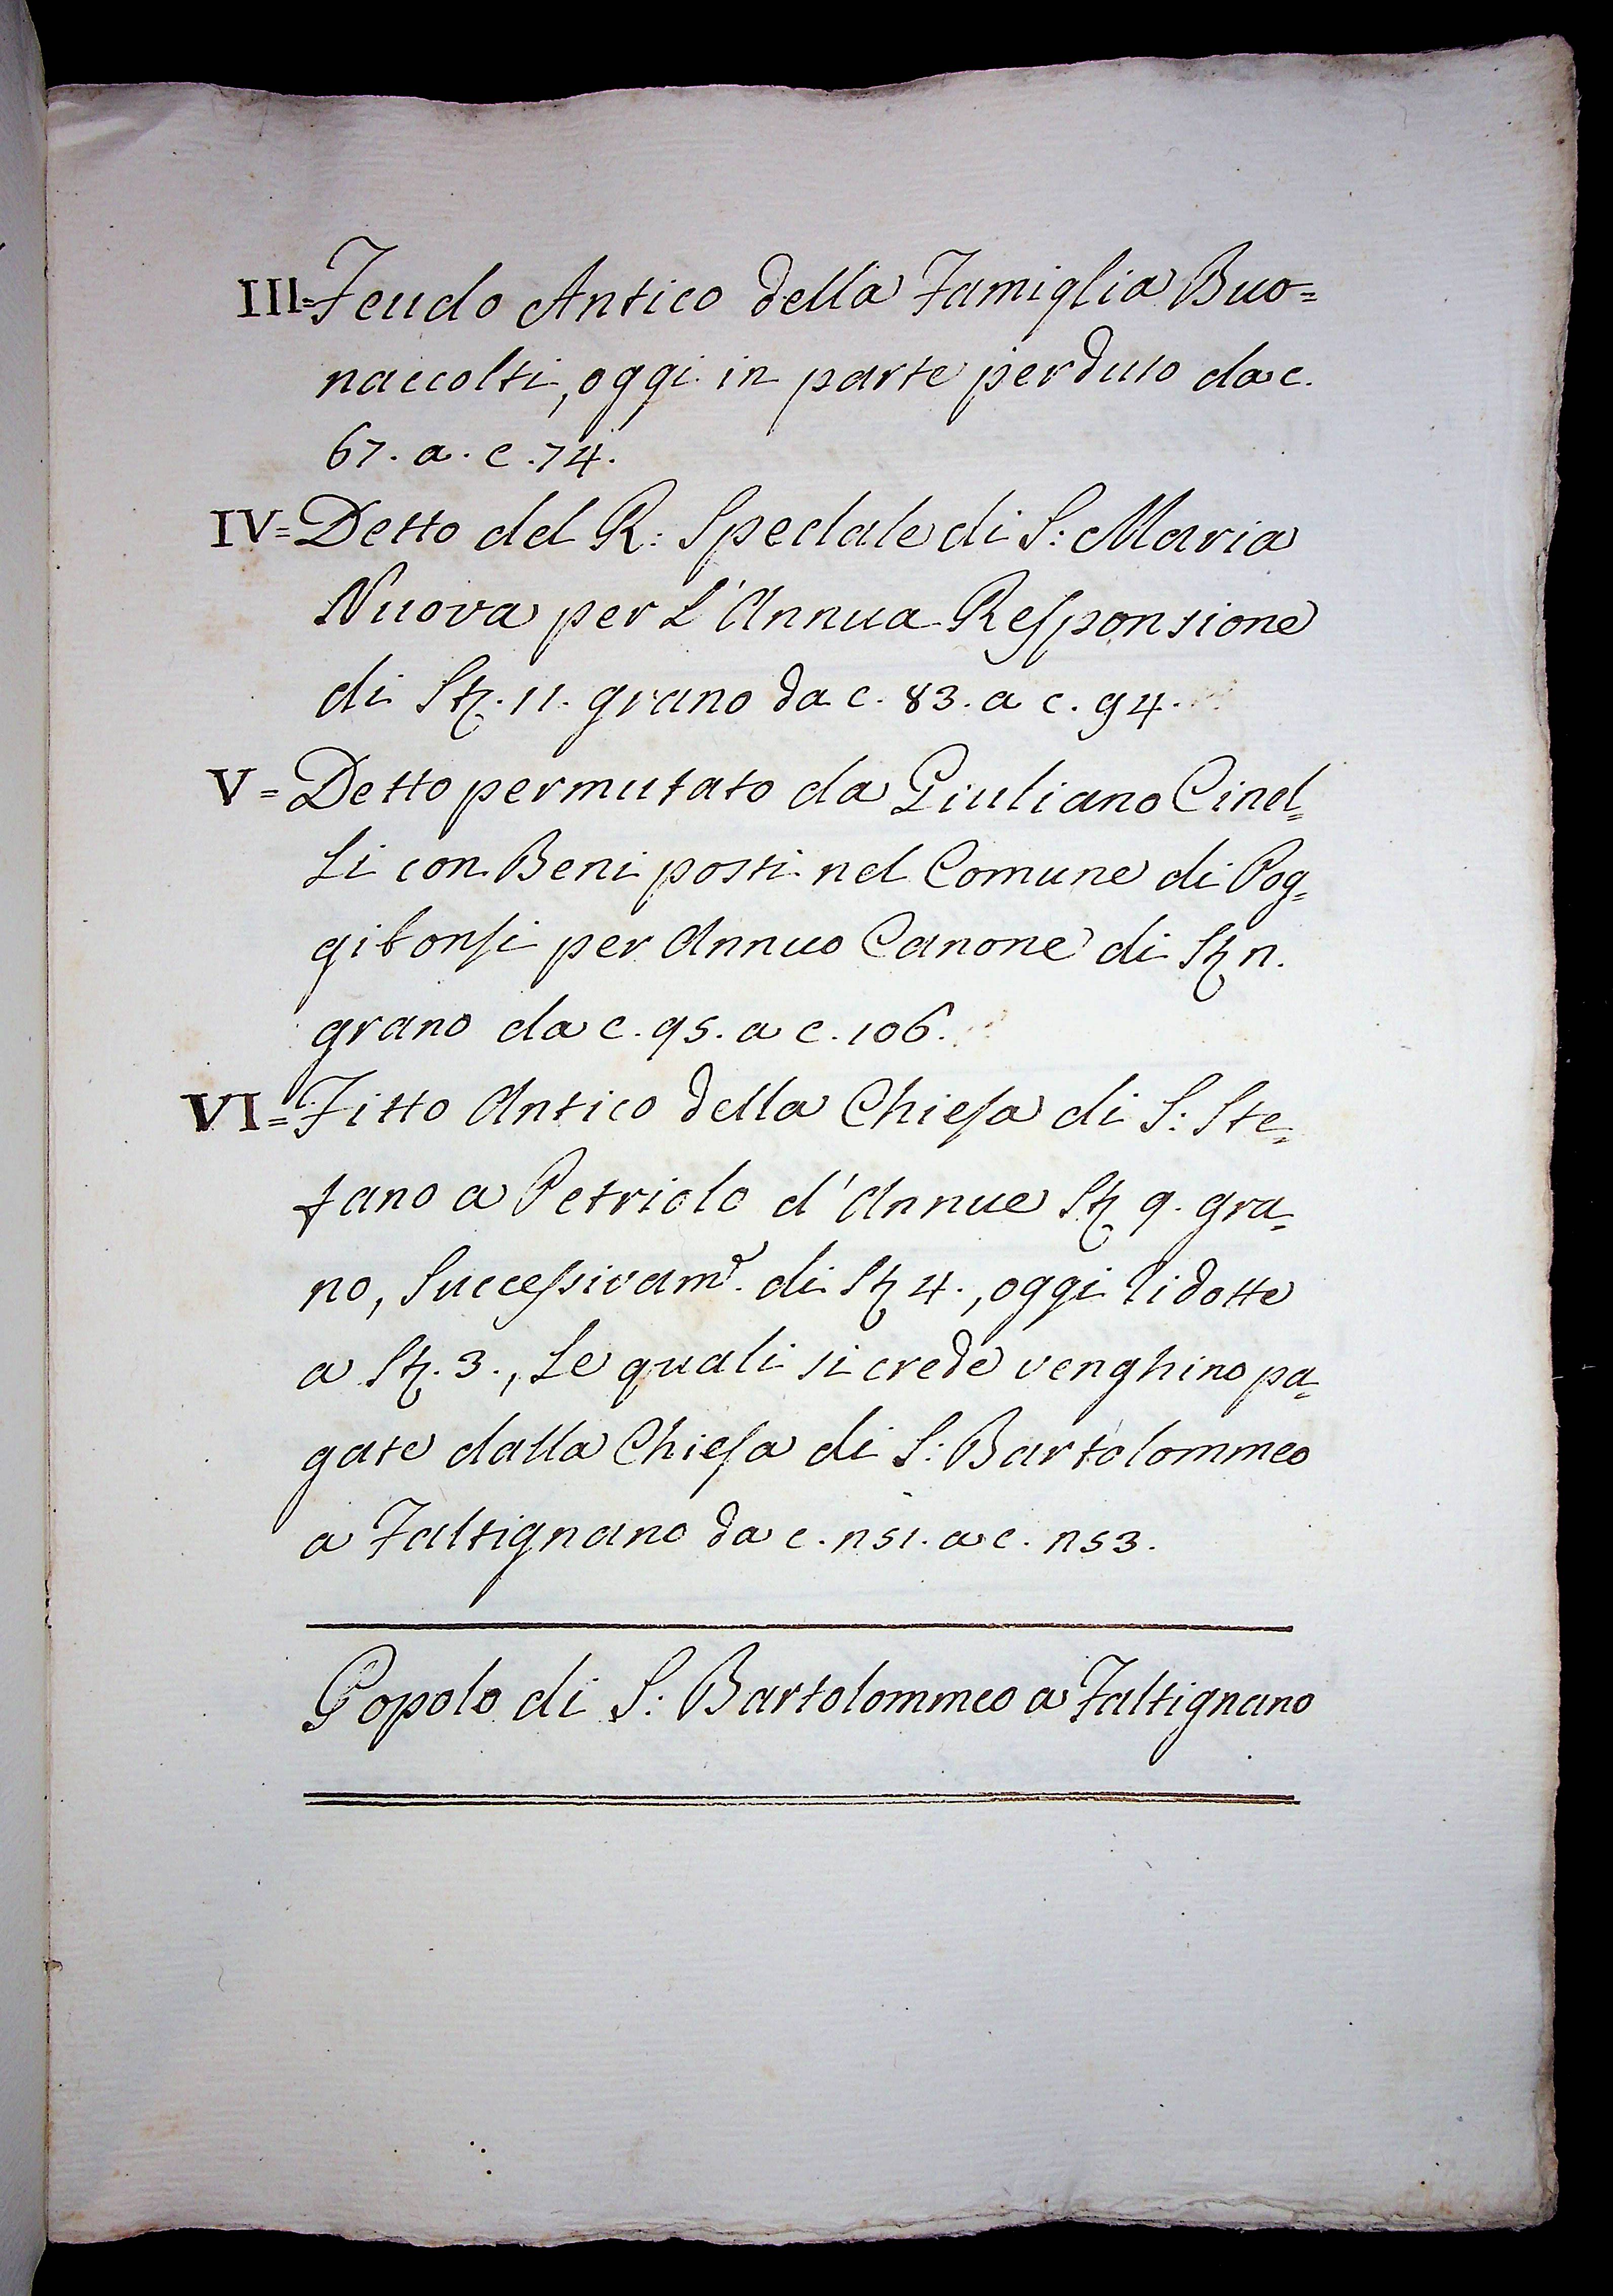 III= Feudo Antico della Famiglia Buo=
naccolti, oggi in parte perduto da c.
67. a. c. 74.
IV= Detto del R: Spedale di S: Maria
Nuova per L'Annua Responsione
di St. 11. grano da c. 83. a c. 94.
V= Detto permutato da Giuliano Cinel=
Li con Beni posti nel Comune di Pog=
gibonsi per Annuo Canone di St 12.
grano da c. 95. a c. 106.
VI= Fitto Antico della Chiesa di S: Ste=
fano a Petriolo d'Annue St 9. gra=
no, Successivam.e di St 4., oggi ridotte
a St. 3., Le quali si crede venghino pa=
gate dalla Chiesa di S: Bartolommeo
a Faltignano da c. 151. a c. 153.
Popolo di S: Bartolommeo a Faltignano